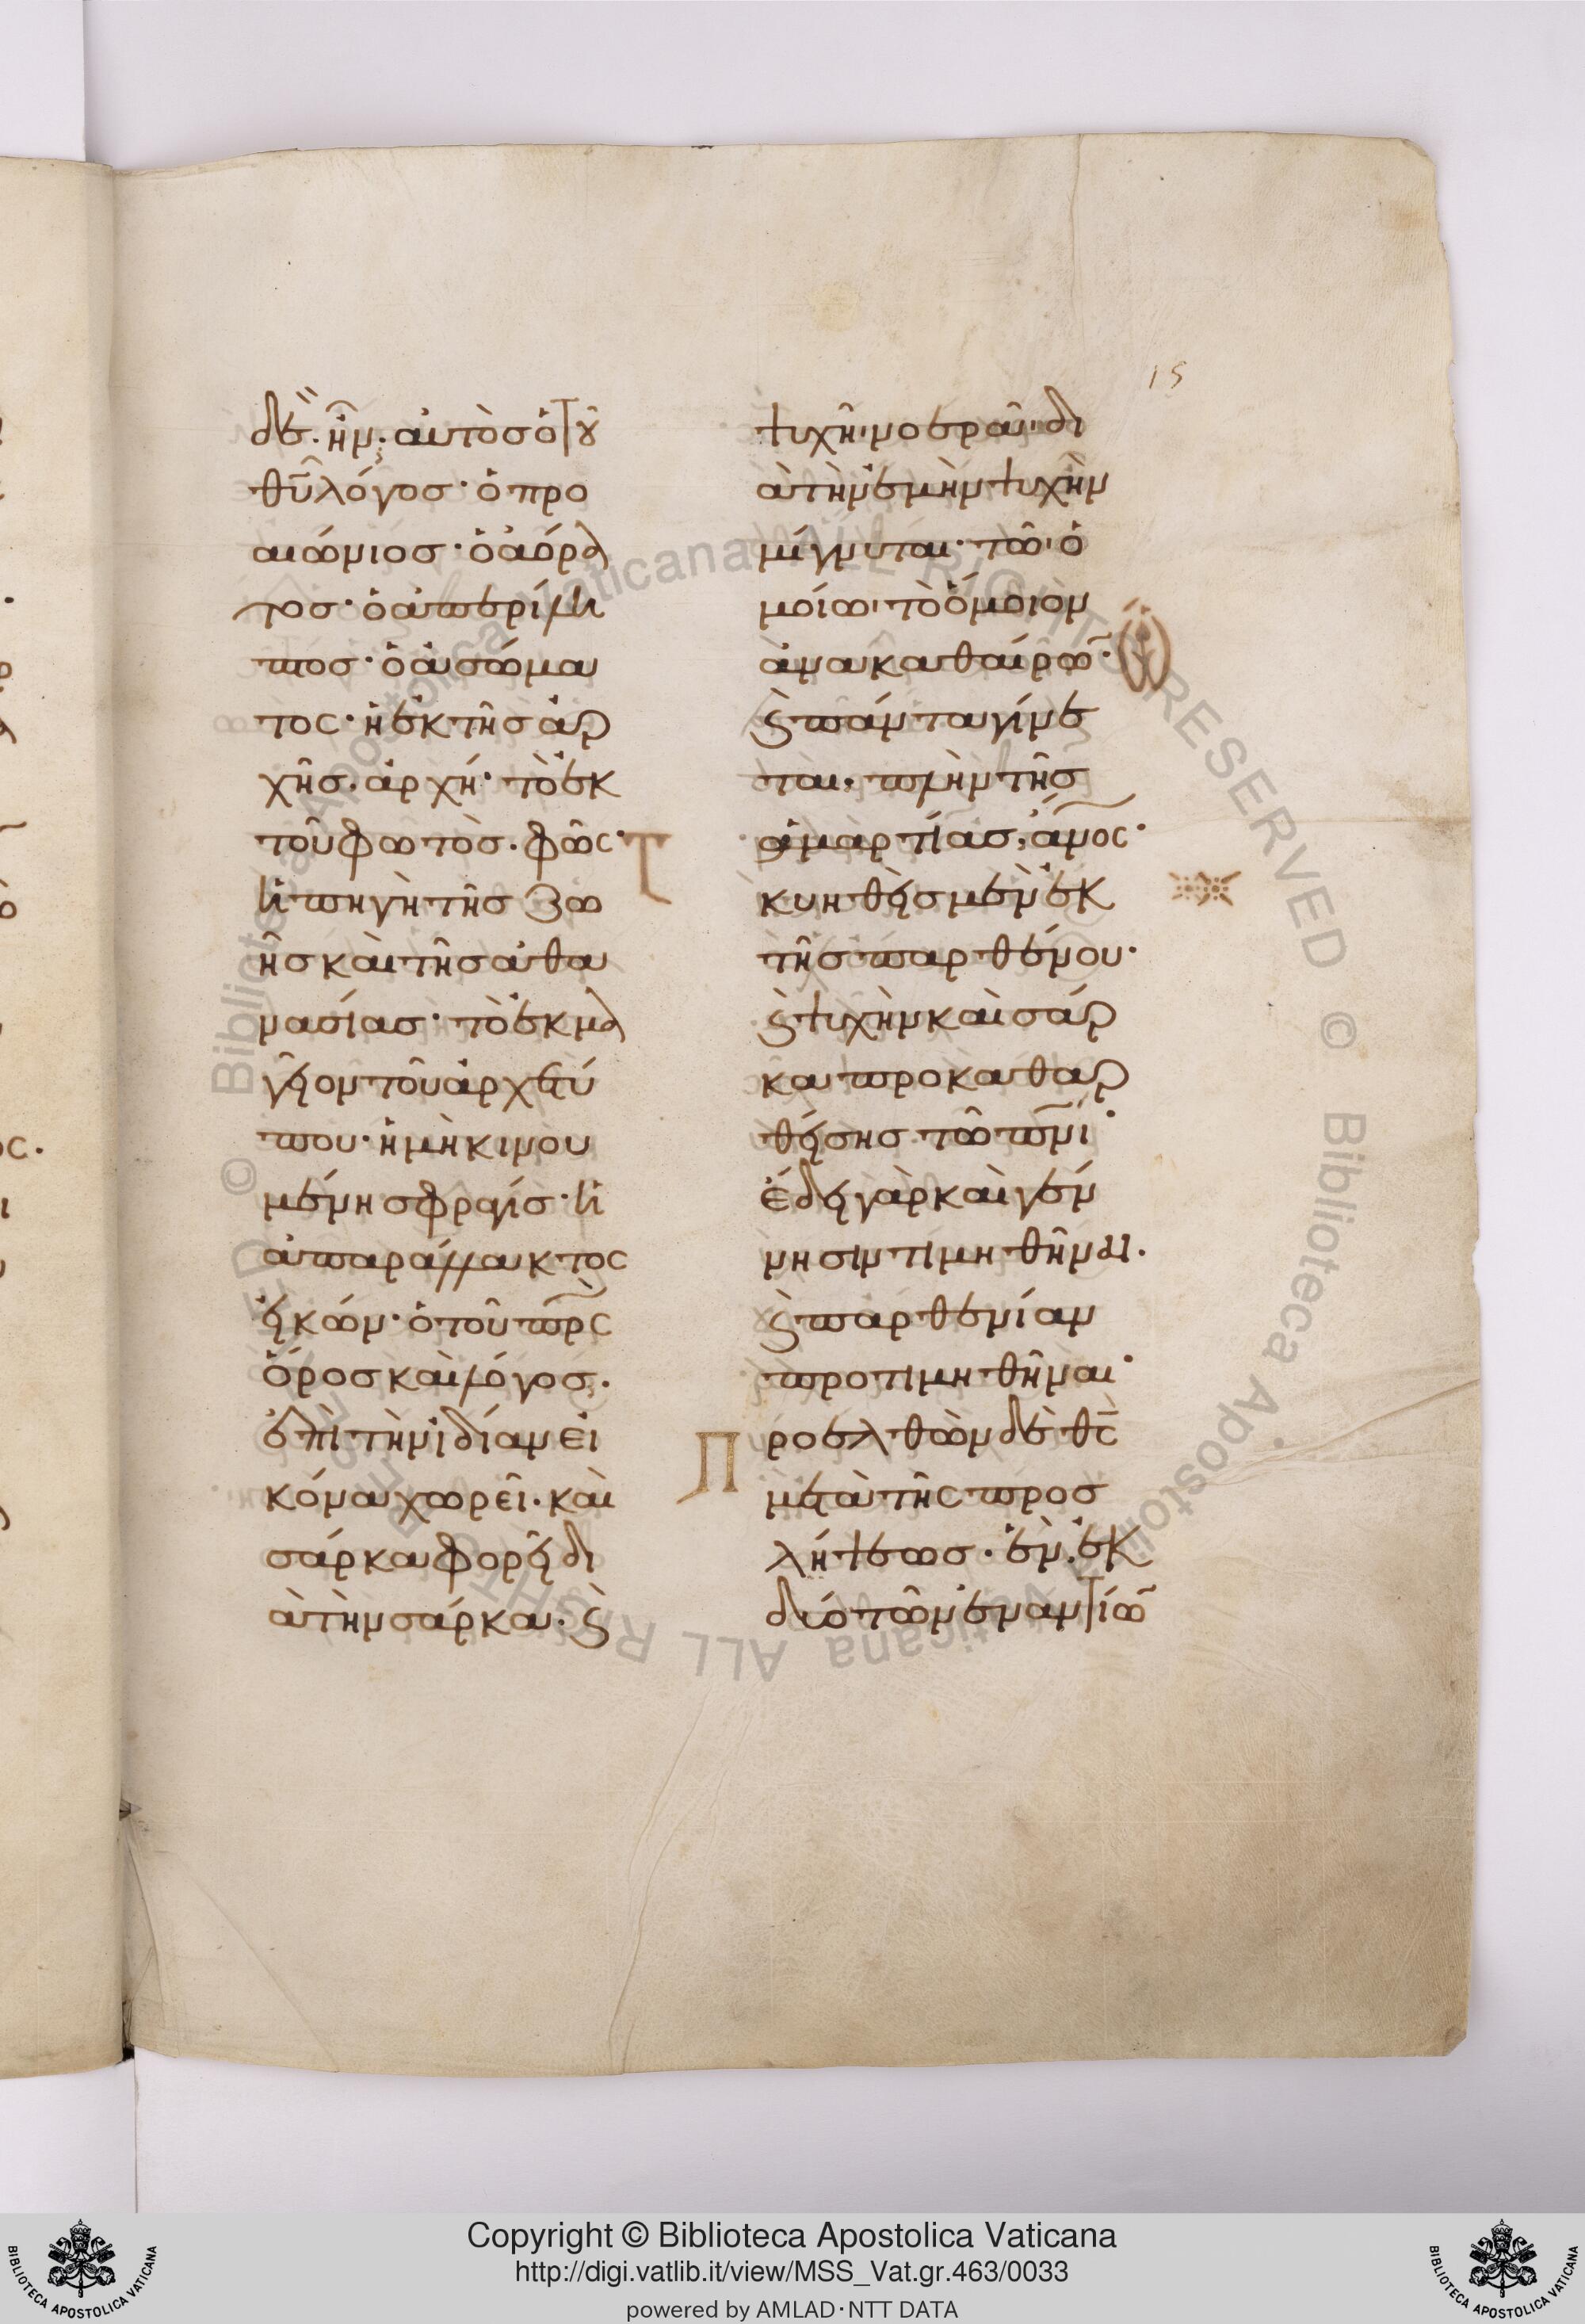 15
δὲ ἦν· αὐτὸς ὁ τοῦ
θῦ λόγος· ὁ προ
αιώνιος· ὁ ἀόρα
τος· ὁ ἀπερίλη
πτος· ὁ ἀσώμα
τος· ἡ ἐκ τῆς ἀρ
χῆς ἀρχή· τὸ ἐκ
τοῦ φωτὸς φῶς·
ἡ πηγὴ τῆς ζω
ῆς καὶ τῆς ἀθα
νασίας· τὸ ἐκμα
γεῖον τοῦ ἀρχετύ
που· ἡ μὴ κινου
μένη σφραγίς· ἡ
ἀπαράλλακτος
εἰκών· ὁ τοῦ πρς
ὅρος καὶ λόγος.
ἐπὶ τὴν ἰδίαν εἰ
κόνα χωρεῖ· καὶ
σάρκα φορεῖ δι
ὰ τὴν σάρκα· καὶ
ψυχῆι νοερᾶι δι
ὰ τὴν ἐμὴν ψυχὴν
μίγνυται· τῶι ὁ
μοίωι τὸ ὅμοιον
ἀνακαθαίρων·
καὶ πάντα γίνε
ται· πλὴν τῆς
ἁμαρτίας, ἄνος·
κυηθεὶς μὲν ἐκ
τῆς παρθένου·
καὶ ψυχὴν καὶ σάρ
κα προκαθαρ
θείσης τῶ πνι·
ἔδει γὰρ καὶ γέν
νησιν τιμηθῆναι·
καὶ παρθενίαν
προτιμηθῆναι·
Προελθὼν δὲ θς
μετὰ τῆς προσ
λήψεως· ἓν ἐκ
δύο τῶν ἐναντίων
Copyright © Biblioteca Apostolica Vaticana
http://digi.vatlib.it/view/MSS_Vat.gr.463/0033
powered by AMLAD·NTT DATA